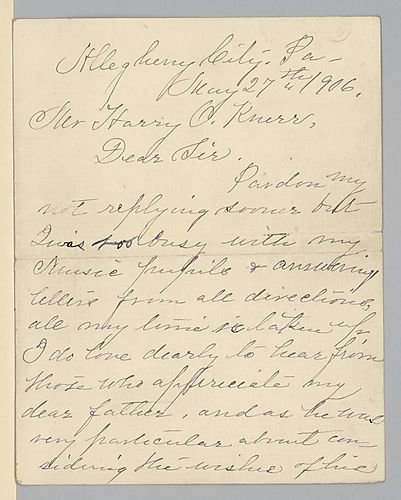 Allegheny City, Pa-
May 27th 1906.
Mr Harry C. Knerr,
Dear Sir.
Pardon my
not replying sooner but
I was too busy with my
Music pupils & answering
letters from all directions,
all my time is taken up
I do love dearly to hear from
those who appreciate my
dear father, and as he was
very particular about con
sidering the wishes of his